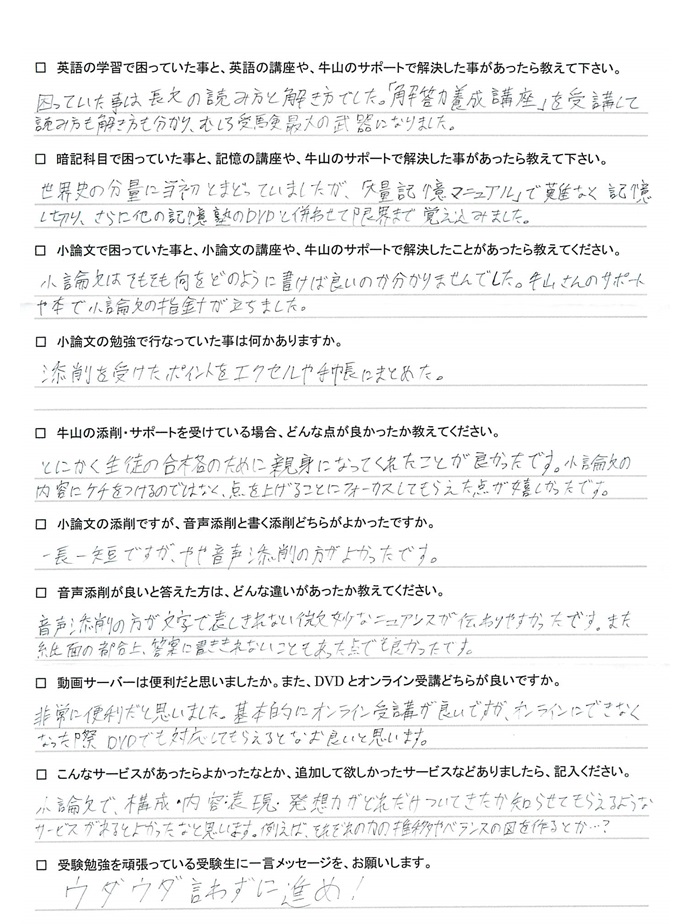 □ 英語の学習で困っていた事と、英語の講座や、牛山のサポートで解決した事があったら教えて下さい。
困っていた事は長文の読み方と解き方でした。「解答力養成講座」を受講して
読み方も解き方も分かり、むしろ受験最大の武器になりました。
□ 暗記科目で困っていた事と、記憶の講座や、牛山のサポートで解決した事があったら教えて下さい。
世界史の分量に当初とまどっていましたが、「大量記憶マニュアル」で難なく記憶
し切り、さらに他の記憶塾のDVDと併わせて限界まで覚え込みました。
□ 小論文で困っていた事と、小論文の講座や、牛山のサポートで解決したことがあったら教えてください。
小論文はそもそも何をどのように書けば良いのか分かりませんでした。牛山さんのサポート
や本で小論文の指針が立ちました。
□ 小論文の勉強で行なっていた事は何かありますか。
添削を受けたポイントをエクセルや手帳にまとめた。
□ 牛山の添削・サポートを受けている場合、どんな点が良かったか教えてください。
とにかく生徒の合格のために親身になってくれたことが良かったです。小論文の
内容にケチをつけるのではなく、点を上げることにフォーカスしてもらえた点が嬉しかったです。
□ 小論文の添削ですが、音声添削と書く添削どちらがよかったですか。
一長一短ですが、やや音声添削の方がよかったです。
□ 音声添削が良いと答えた方は、どんな違いがあったか教えてください。
音声添削の方が文字で表しきれない微妙なニュアンスが伝わりやすかったです。また
紙面の都合上、答案に書ききれないこともあった点でも良かったです。
□ 動画サーバーは便利だと思いましたか。また、DVDとオンライン受講どちらが良いですか。
非常に便利だと思いました。基本的にオンライン受講が良いですが、オンラインにできなく
なった際DVDでも対応してもらえるとなお良いと思います。
□ こんなサービスがあったらよかったなとか、追加して欲しかったサービスなどありましたら、記入ください。
小論文で、構成・内容・表現・発想力がどれだけついてきたか知らせてもらえるような
サービスがあるとよかったなと思います。例えば、それぞれの力の推移やバランスの図を作るとか…?
□ 受験勉強を頑張っている受験生に一言メッセージを、お願いします。
ウダウダ言わずに進め!